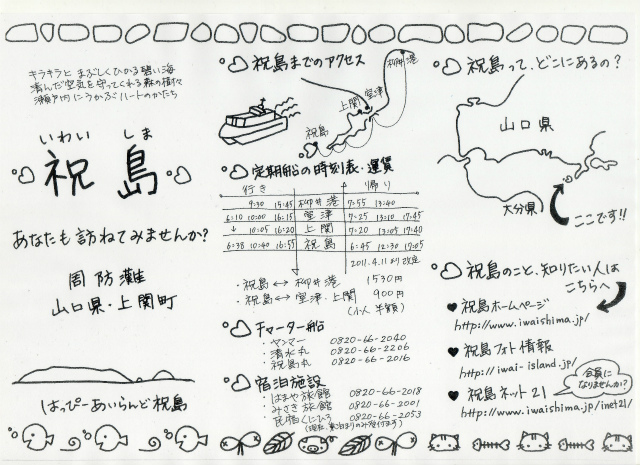 キラキラと まぶしくひかる碧い海
澄んだ空気を守ってくれる森の樹々
瀬戸内にうかぶハートのかたち
いわい しま
祝 島
あなたも訪ねてみませんか?
周防灘
山口県・上関町
はっぴーあいらんど祝島
祝島までのアクセス
柳井港
室津
上関
祝島
定期船の時刻表・運賃
行き 帰り
9:30 15:45 柳井港 7:55 13:40
6:10 10:00 16:15 室津 7:25 13:10 17:45
↓ 10:05 16:20 上関 7:20 13:05 17:40
6:38 10:40 16:55 祝島 6:45 12:30 17:05
2011.4.11より改定
・祝島 ↔ 柳井港 1530円
・祝島 ↔ 室津・上関 900円
(小人 半額)
チャーター船
・ヤンマー 0820-66-2040
・清水丸 0820-66-2206
・祝島丸 0820-66-2016
宿泊施設
・はまや旅館 0820-66-2018
・みさき旅館 0820-66-2001
・民宿くにひろ 0820-66-2053
祝島って、どこにあるの?
山口県
大分県
ここです!!
祝島のこと、知りたい人は
こちらへ
祝島ホームページ
http://www.iwaishima.jp/
祝島フォト情報
http://iwai-island.jp/
祝島ネット21
会員に
なりませんか?
http://www.iwaishima.jp/inet21/